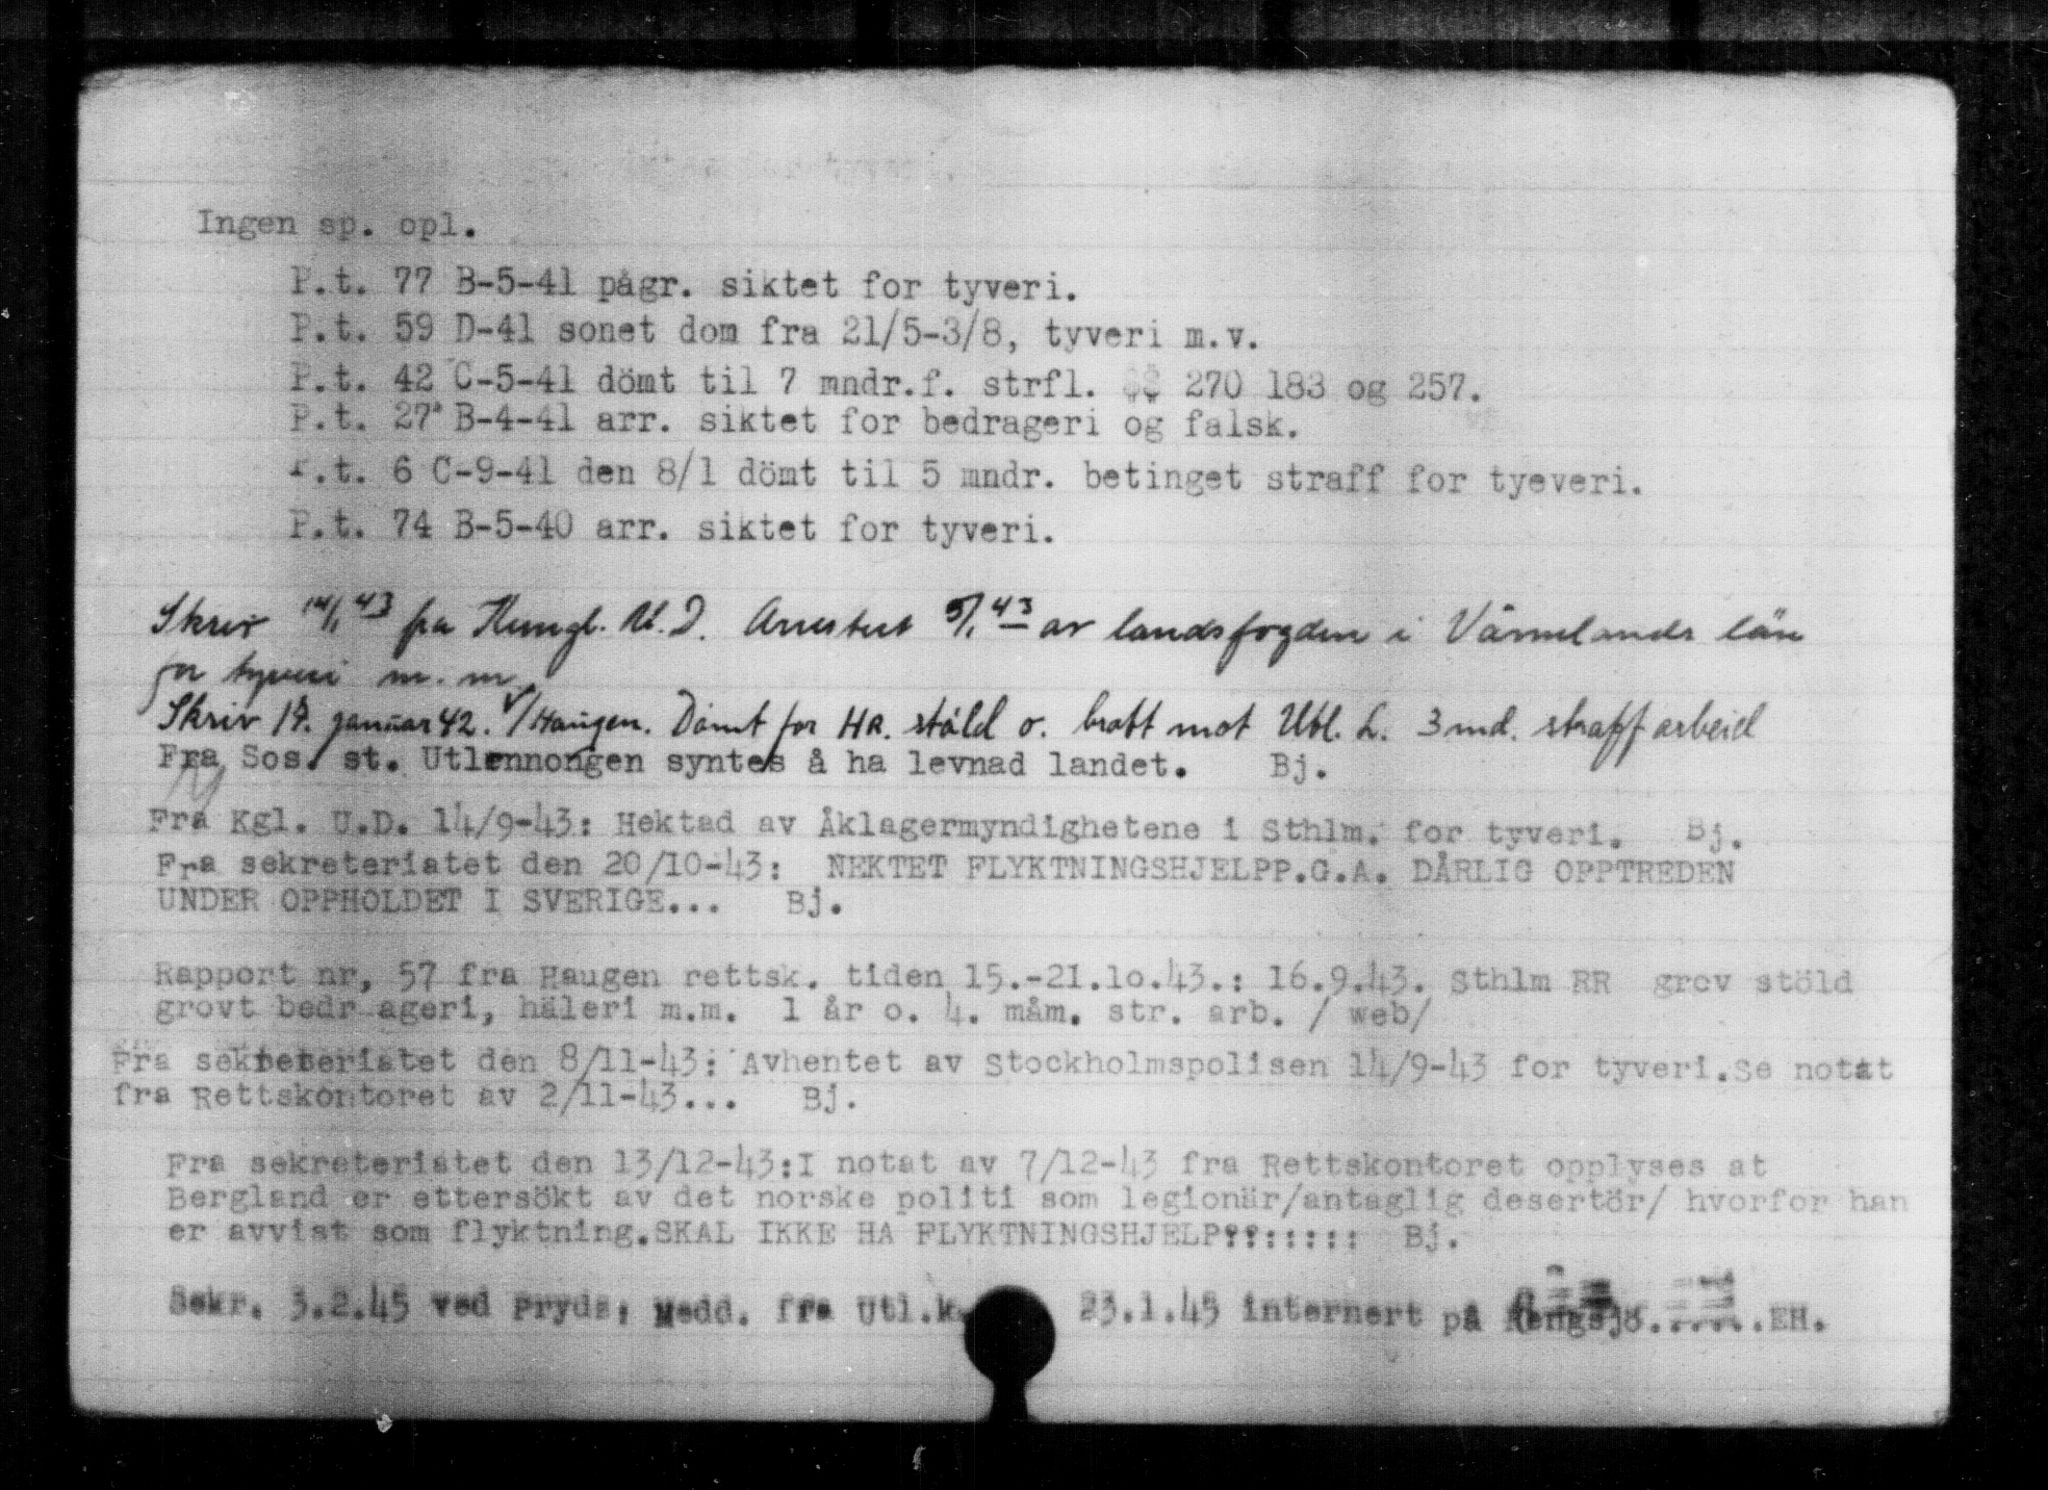 Ingen sp. opl.
P.t. 77 B-5-41 pågr. siktet for tyveri.
P.t. 59 D-41 sonet dom fra 21/5-3/8, tyveri m.v.
P.t. 42 C-5-41 dömt til 7 mndr.f. strfl. §§ 270 183 og 257.
P.t. 27 B-4-41 arr. siktet for bedrageri og falsk.
P.t. 6 C-9-41 den 8/1 dömt til 5 mndr. betinget straff for tyeveri.
P.t. 74 B-5-40 arr. siktet for tyveri.
Skriv 14/1 43 fra Kungl. U.D. Arrestert 5/1 43 av landsfogden i Värmlands län
for tyveri m.m.
Skriv 19. januar 42. v/Haugen. Dömt for HR. stöld o. brott mot Utl. L. 3 md. straffarbeid
Fra Sos. st. Utlennongen syntes å ha levnad landet. Bj.
Fra Kgl. U.D. 14/9-43: Hektad av Åklagermyndighetene i Sthlm. for tyveri. Bj.
Fra sekreteriatet den 20/10-43: NEKTET FLYKTNINGSHJELPP.G.A. DÅRLIG OPPTREDEN
UNDER OPPHOLDET I SVERIGE... Bj.
Rapport nr, 57 fra Haugen rettsk. tiden 15.-21.1o.43.: 16.9.43. Sthlm RR grov stöld
grovt bedr ageri, häleri m.m. 1 år o. 4. måm. str. arb. / web/
Fra sekreteriatet den 8/11-43: Avhentet av Stockholmspolisen 14/9-43 for tyveri.Se notat
fra Rettskontoret av 2/11-43... Bj.
Fra sekreteriatet den 13/12-43:I notat av 7/12-43 fra Rettskontoret opplyses at
Bergland er ettersökt av det norske politi som legionär/antaglig desertör/ hvorfor han
er avvist som flyktning.SKAL IKKE HA FLYKTNINGSHJELP:::::::: Bj.
Sekr. 3.2.45 ved Pryds: Medd. fra Utl.k. 23.1.45 internert på Rengsjö.......EH.